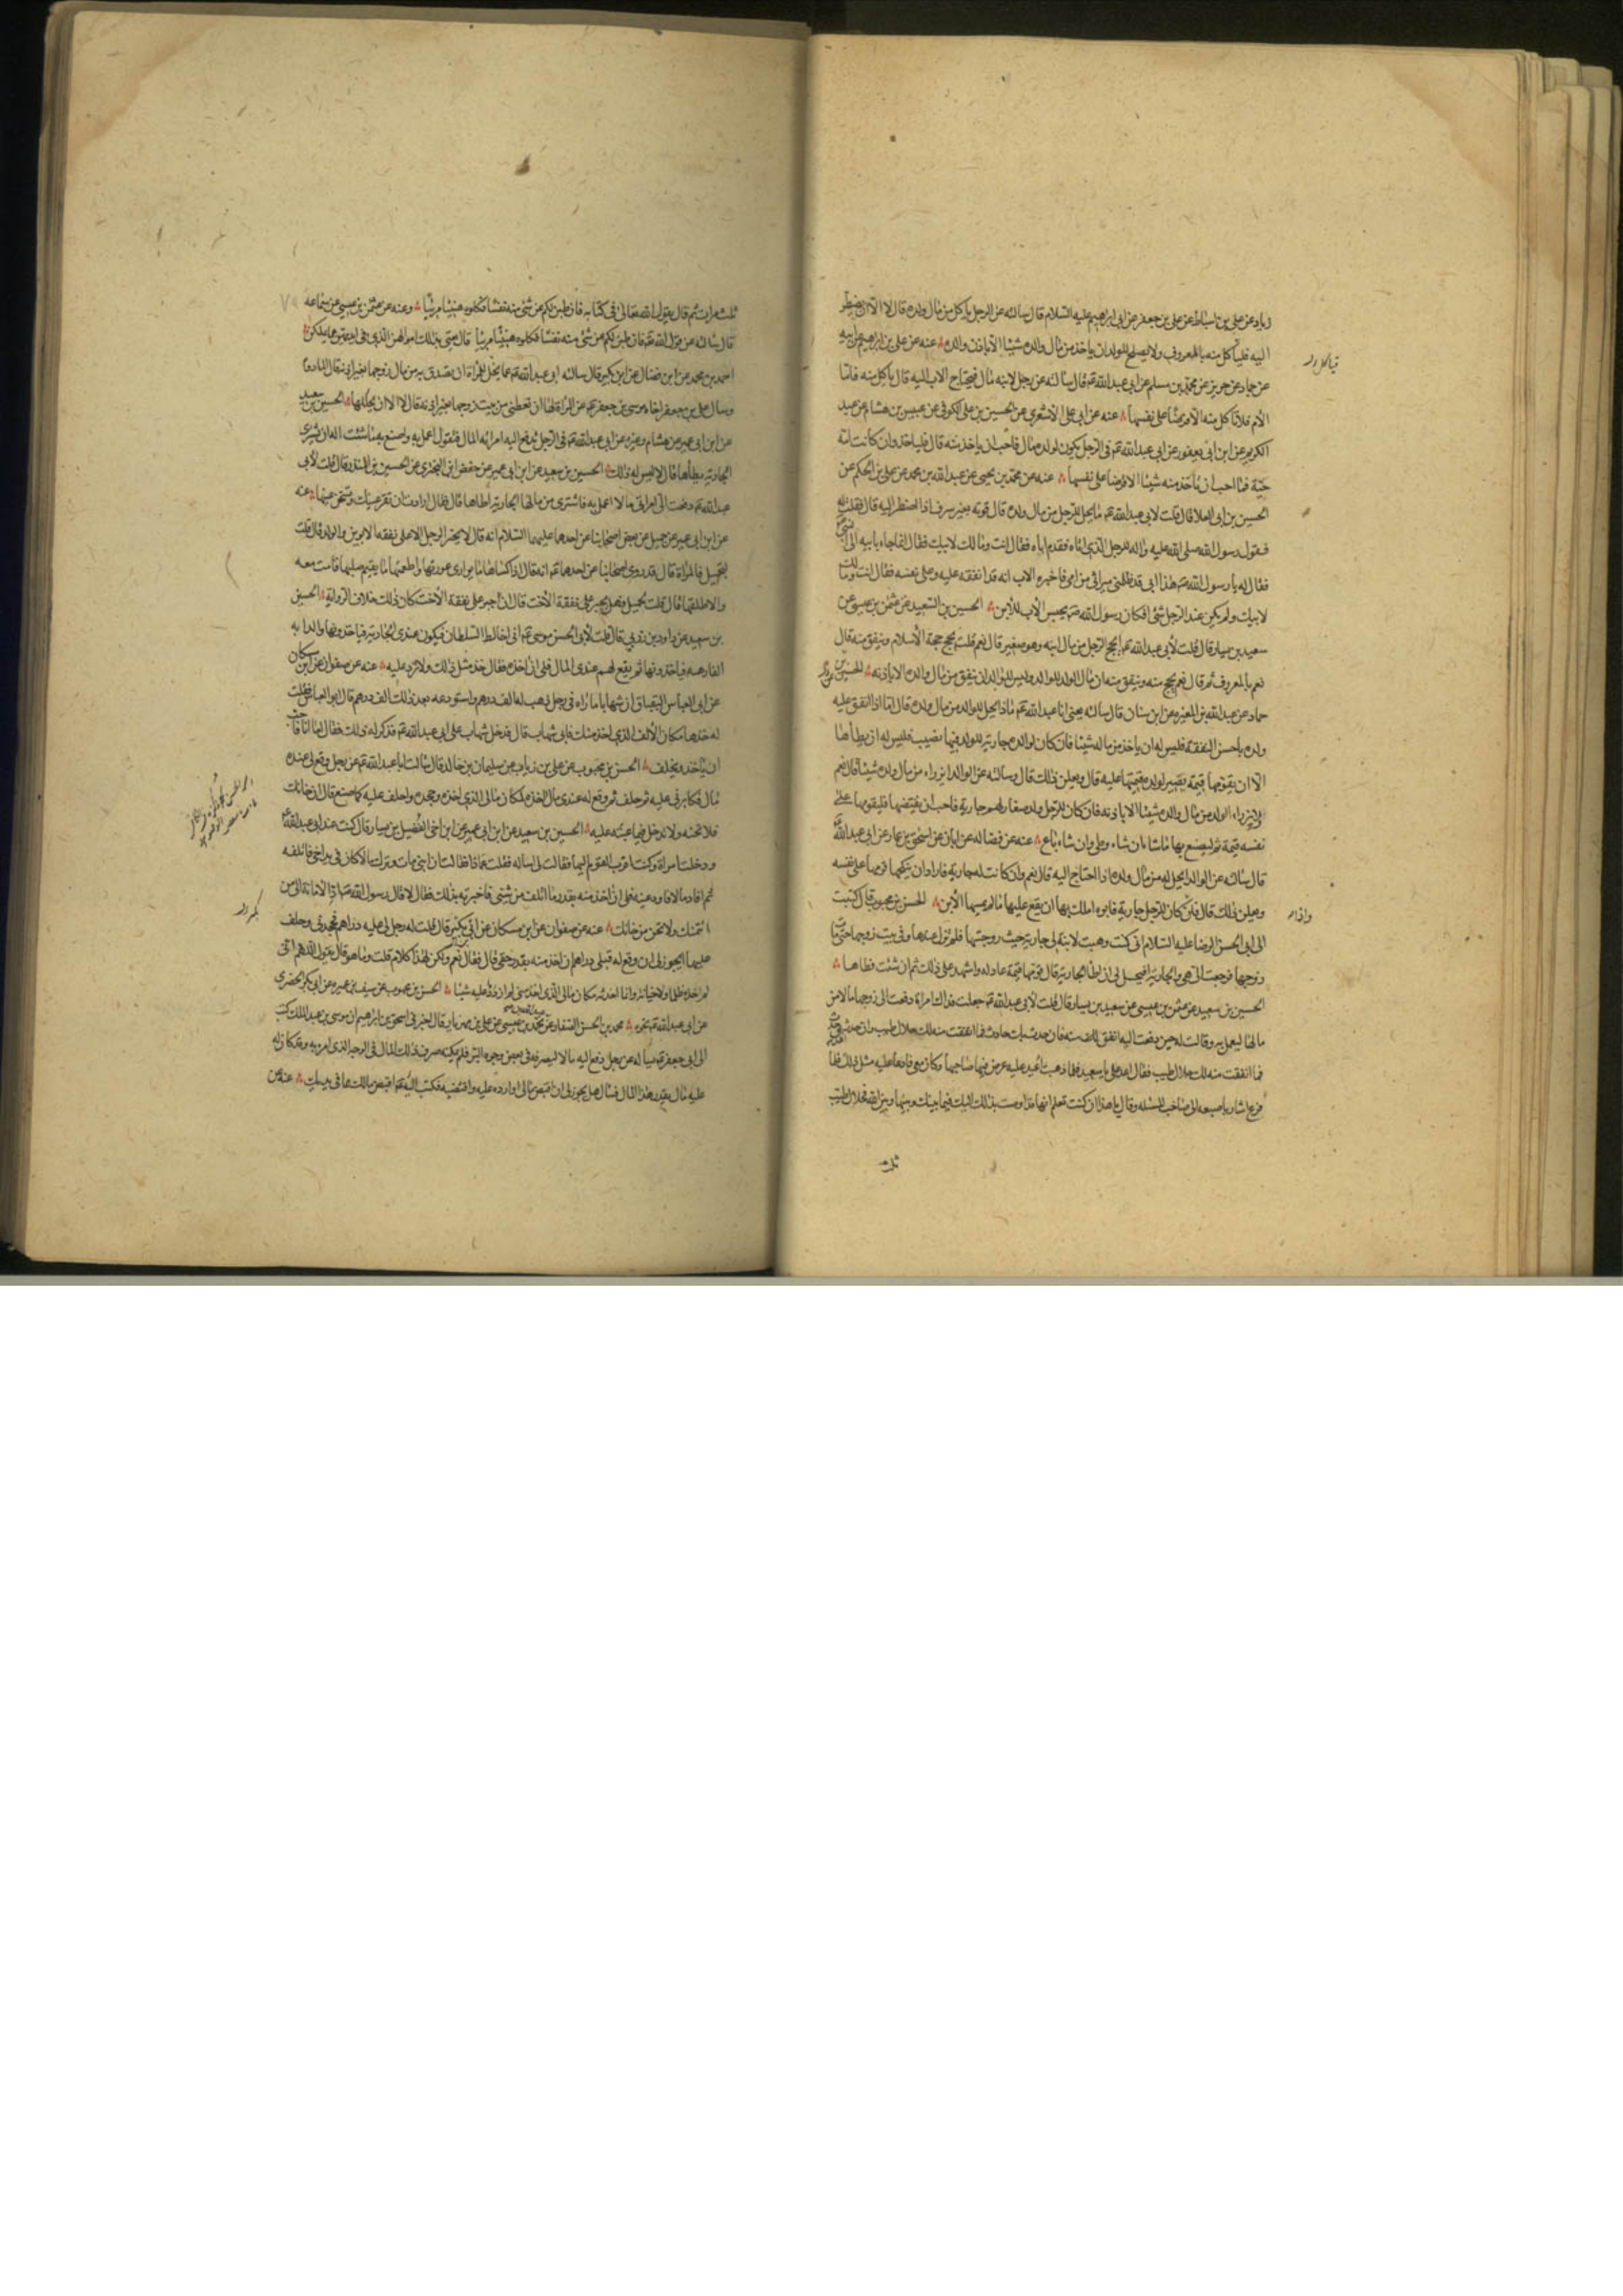 زياد عن علي بن اسباط عن علي بن جعفر عن ابي ابراهيم عليه السلام قال سالته عن الرجل ياكل من مال ولده قال لا الا ان يضطر
اليه فلياكل منه بالمعروف ولا يصلح للولد ان ياخذ من مال والده شيئا الا باذن والده عنه عن علي بن ابراهيم عن ابيه
عن حماد عن حريز عن محمد بن مسلم عن ابي عبد الله عم قال سالته عن رجل لابنه مال فيحتاج الاب اليه قال ياكل منه فاما
الام فلا تاكل منه الا قرضا على نفسها عنه عن ابي علي الاشعري عن الحسين بن علي الكوفي عن عبيس بن هشام عن عبد
الكريم عن ابن ابي يعفور عن ابي عبد الله عم في الرجل يكون لولده مال فاحب ان ياخذ منه قال فلياخذ وان كانت امه
حية فما احب ان تاخذ منه شيئا الا قرضا على نفسها عنه عن محمد بن يحيى عن عبد الله بن محمد عن علي بن الحكم عن
الحسين بن ابي العلا قال قلت لابي عبد الله عم ما يحل للرجل من مال ولده قال قوته بغير سرف اذا اضطر اليه قال فقلت له
فقول رسول الله صلى الله عليه واله للرجل الذي اتاه فقدم اباه فقال انت ومالك لابيك فقال انما جاء بابيه الى النبي
فقال له يا رسول الله هذا ابي قد ظلمني ميراثي من امي فاخبره الاب انه قد انفقه عليه وعلى نفسه فقال انت ومالك
لابيك ولم يكن عند الرجل شئ افكان رسول الله ص يحبس الاب للابن الحسين بن السعيد عن عثمن بن عيسى عن
سعيد بن يسار قال قلت لابي عبد الله عم ايحج الرجل من مال ابنه وهو صغير قال نعم قلت يحج حجة الاسلام وينفق منه قال
نعم بالمعروف ثم قال نعم يحج منه وينفق منه ان مال الولد للوالد وليس للولد ان ينفق من مال والده الا باذنه الحسين بن
حماد عن عبد الله بن المغيرة عن ابن سنان قال سالته يعني ابا عبد الله عم ماذا يحل للوالد من مال ولده قال اما اذا انفق عليه
ولده باحسن النفقة فليس له ان ياخذ من ماله شيئا فان كان لوالده جارية للولد فيها نصيب فليس له ان يطأها
الا ان يقومها قيمة تصير لولده قيمتها عليه قال ويعلن ذلك قال وسالته عن الوالد ايرزاء من مال ولده شيئا قال نعم
ولا يرزاء الولد من مال والده شيئا الا باذنه فان كان للرجل ولد صغار لهم جارية فاحب ان يفتضها فليقومها على
نفسه قيمة ثم ليصنع بها ما شاء ان شاء وطى وان شاء باع عنه عن فضاله عن ابان عن اسحق بن عمار عن ابي عبد الله
قال سالته عن الوالد ايحل له من مال ولده اذا احتاج اليه قال نعم وان كانت له جارية فاراد ان ينكحها قومها على نفسه
ويعلن ذلك قال فان كان للرجل جارية فابوه املك بها ان يقع عليها ما لم يمسها الابن الحسن بن محبوب قال كتبت
الى ابي الحسن الرضا عليه السلام اني كنت وهبت لابنة لي جارية حيث زوجتها فلم تزل عندها وفي بيت زوجها حتى مات
زوجها فرجعت الي هي والجارية افيحل لي ان اطأ الجارية قال قومها قيمة عادلة واشهد على ذلك ثم ان شئت فطاها
الحسين بن سعيد عن عثمن بن عيسى عن سعيد بن يسار قال قلت لابي عبد الله عم جعلت فداك امراة دفعت الى زوجها مالا من
مالها ليعمل به وقالت له حين دفعت اليه انفق منه فان حدث بك حادث فما انفقت منه لك حلال طيب وان حدث بي حدث
فما انفقت منه لك حلال طيب فقال اعد علي يا سعيد فلما ذهبت اعيد عليه عرض فيها صاحبها وكان معي فاعاد عليه مثل ذلك فلما
فرغ اشار باصبعه الى صاحب المسئلة وقال يا هذا ان كنت تعلم انها قد اوصت بذلك اليك فيما بينك وبينها وبين الله فحلال طيب
ثلث
ثلث مرات ثم قال يقول الله تعالى في كتابه فان طبن لكم عن شئ منه نفسا فكلوه هنيئا مريئا وعنه عن عثمن بن عيسى عن سماعه
قال سالته عن قول الله عم فان طبن لكم عن شئ منه نفسا فكلوه هنيئا مريئا قال يعني بذلك اموالهن الذي في ايديهن مما يملكن
احمد بن محمد عن ابن فضال عن ابن بكير قال سالته ابي عبد الله عم عما يحل للمراة ان تصدق به من مال زوجها بغير اذنه قال المادوم
وسال علي بن جعفر اخاه موسى بن جعفر عم عن المراة لها ان تعطي من بيت زوجها بغير اذنه قال لا الا ان يحللها الحسين بن سعيد
عن ابن ابي عمير عن هشام وغيره عن ابي عبد الله عم في الرجل تدفع اليه امراته المال فتقول اعمل به واصنع به ما شئت اله ان يشتري
الجارية يطأها قال لا ليس له ذلك الحسين بن سعيد عن ابن ابي عمير عن حفص ابن البختري عن الحسين بن المنذر قال قلت لابي
عبد الله عم دفعت الي امراتي مالا اعمل به فاشتري من مالها الجارية اطاها قال فقال ارادت ان تقر عينك وتسخن عينها عنه
عن ابن ابي عمير عن جميل عن بعض اصحابنا عن احدهما عليهما السلام انه قال لا يجبر الرجل الا على نفقه الابوين والولد قال قلت
لجميل فالمراة قال قد روى اصحابنا عن احدهما عم انه قال اذا كساها ما يوارى عورتها واطعمها ما يقيم صلبها قامت معه
والا طلقها قال قلت لجميل فهل يجبر على نفقة الاخت قال ان اجبر على نفقة الاخت كان ذلك خلاف الرواية الحسين
بن سعيد عن داود بن زربي قال قلت لابي الحسن موسى عم اني اخالط السلطان فيكون عندي الجارية فياخذونها والدابه
الفارهه فياخذونها ثم يقع لهم عندي المال فلي ان اخذه فقال خذ مثل ذلك ولا تزد عليه عنه عن صفوان عن ابن مسكان
عن ابي العباس البقباق ان شهابا ماراه في رجل ذهب له الف درهم واستودعه بعد ذلك الف درهم قال ابو العباس فقلت
له خذها مكان الالف الذي اخذ منك فابى شهاب قال فدخل شهاب على ابي عبد الله عم فذكر له ذلك فقال اما انا فاحب
ان تاخذ وتحلف الحسن بن محبوب عن علي بن رياب عن سليمان بن خالد قال سالت ابا عبد الله عم عن رجل وقع لي عنده
مال فكابرني عليه ثم حلف ثم وقع له عندي مال اخذه لمكان مالي الذي اخذه وجحده واحلف عليه كما صنع قال ان خانك
فلا تخنه ولا تدخل فيما عبته عليه الحسين بن سعيد عن ابن ابي عمير عن ابن اخي الفضيل بن يسار قال كنت عند ابي عبد الله
ودخلت امراة وكنت اقرب القوم اليها فقالت لي اساله فقلت عماذا فقالت ان ابني مات وترك مالا كان في يد اخي فاتلفه
ثم افاد مالا فاودعنيه فلي ان اخذ منه بقدر ما اتلف من شئ فاخبرته بذلك فقال لا قال رسول الله ص اد الامانة الى من
ائتمنك ولا تخن من خانك عنه عن صفوان عن ابن مسكان عن ابي بكر قال قلت له رجل لي عليه دراهم فجحدني وحلف
عليها ايجوز لي ان وقع له قبلي دراهم ان اخذ منه بقدر حقي قال فقال نعم ولكن لهذا كلام قلت وما هو قال تقول اللهم اني
لم اخذه ظلما ولا خيانة وانا اخذته مكان مالي الذي اخذ مني لم ازدد عليه شيئا الحسن بن محبوب عن سيف بن عميره عن ابي بكر الحضرمي
عن ابي عبد الله عم نحوه محمد بن الحسن الصفار عن محمد بن عيسى عن علي بن مهزيار قال اخبرني اسحق بن ابراهيم ان موسى بن عبد الملك كتب
الى ابي جعفر عم يساله عن رجل دفع اليه مالا ليصرفه في بعض وجوه البر فلم يمكنه صرف ذلك المال في الوجه الذي امره به وقد كان له
عليه مال بقدر هذا المال فسال هل يجوز لي ان اقبض مالي او ارده عليه واقتضيه فكتب اليه عم اقبض مالك مما في يديك عنه عن